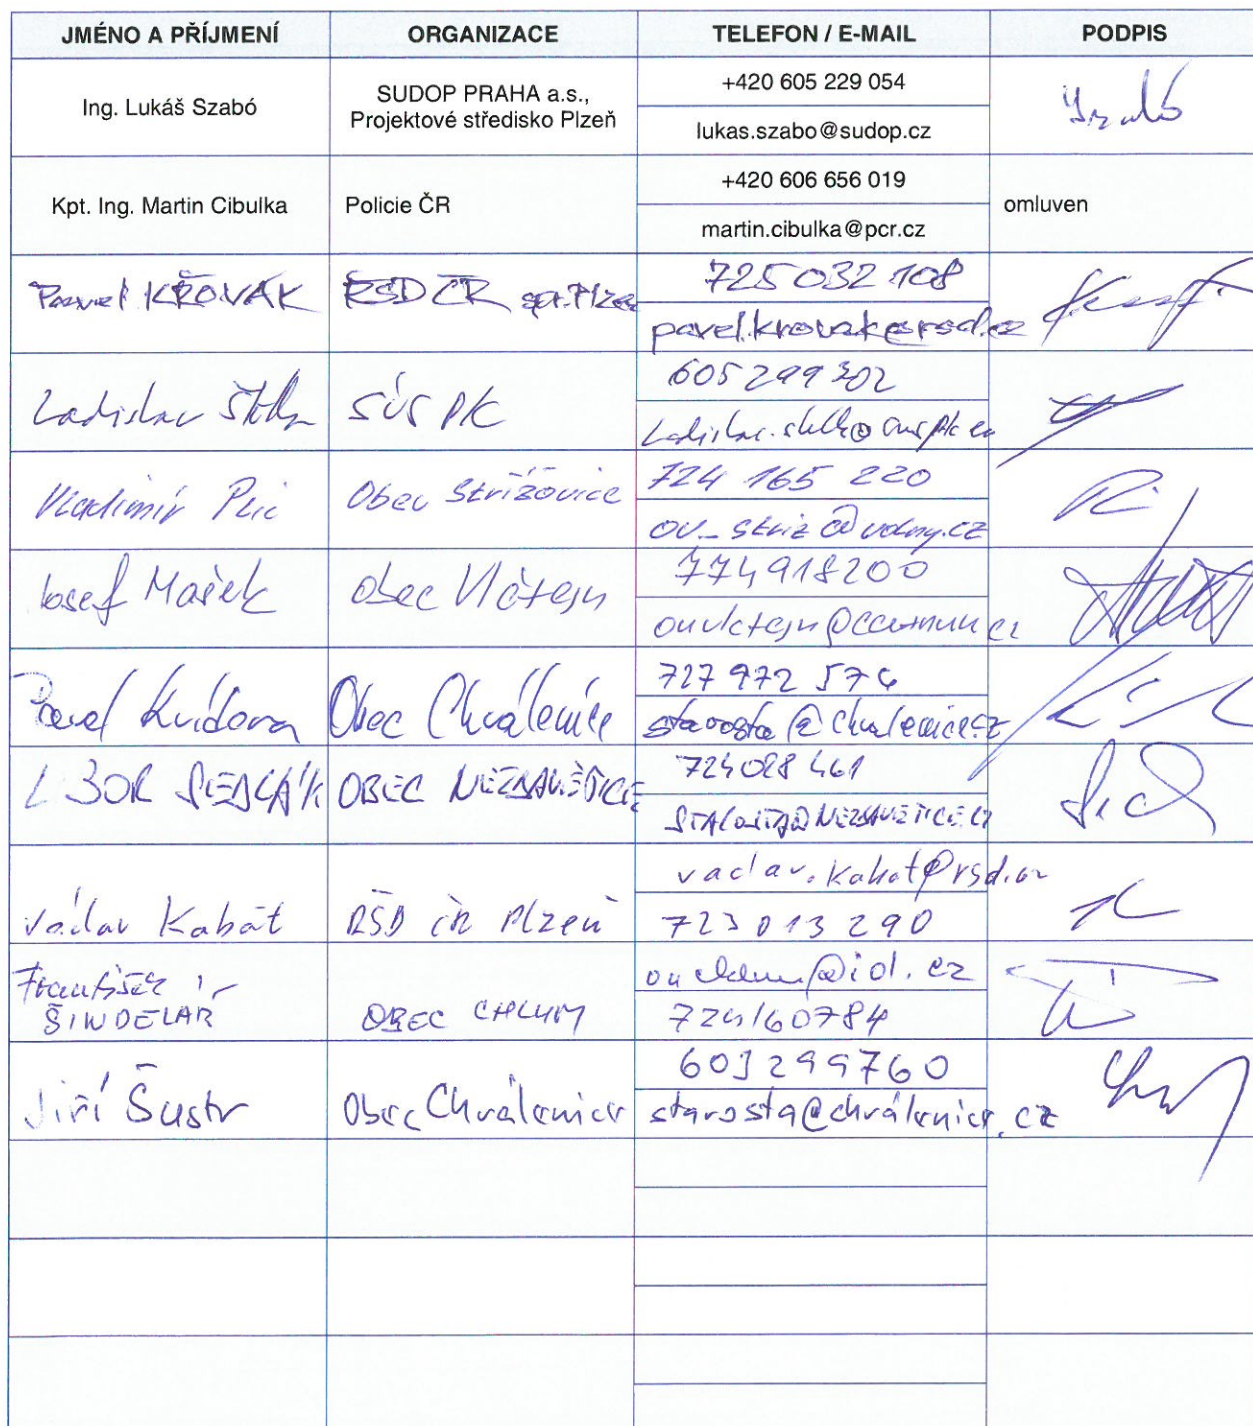 JMÉNO A PŘÍJMENÍ ORGANIZACE TELEFON / E-MAIL PODPIS
Ing. Lukáš Szabó
SUDOP PRAHA a.s.,
Projektové středisko Plzeň
+420 605 229 054
lukas.szabo@sudop.cz
Kpt. Ing. Martin Cibulka
Policie ČR
+420 606 656 019
martin.cibulka@pcr.cz
omluven
Pavel KŘOVÁK
ŘSD ČR
725 032 108
pavel.krovak@rsd.cz
Ladislav
SÚS PK
605 299 302
Vladimír
Obec Střížovice
724 165 220
Josef Mašek
obec Vlčtejn
774918200
Pavel
Obec Chválenice
727 972 576
starosta@chvalenice.cz
LIBOR SEDLÁK
OBEC NEZVĚSTICE
724028461
Václav Kabát
ŘSD ČR Plzeň
vaclav.kabat@rsd.cz
723 013 290
František
ŠINDELÁŘ
OBEC CHLUM
724160784
Jiří Šustr
Obec Chválenice
603299760
starosta@chválenice.cz